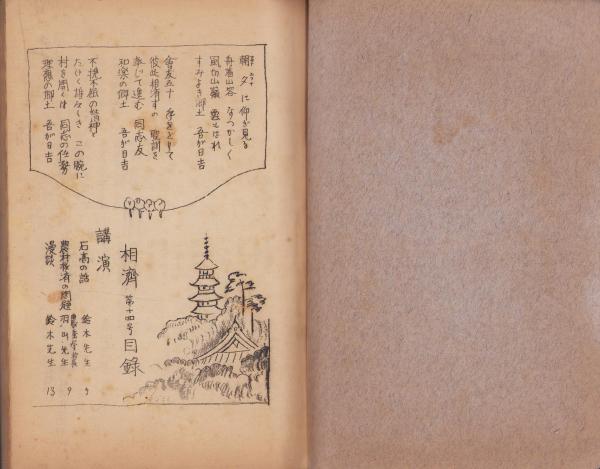 朝夕に仰ぎ見る
舟着山容 なつかしく
風切山嶺 雲はれ
すみよき郷土 吾が日吉
會友五十 手をとりて
彼此相済すの 聖訓を
奉じて進む 同志友
和楽の郷土 吾が日吉
不撓不屈の精神と
たけく雄々しき この腕に
村を開くは 同志の任務
理想の郷土 吾が日吉
相濟 第十四号 目錄
講演
石高の話 鈴木先生 5
農村救済の問題 農蚕学校長 羽田先生 9
漫談 鈴木先生 13